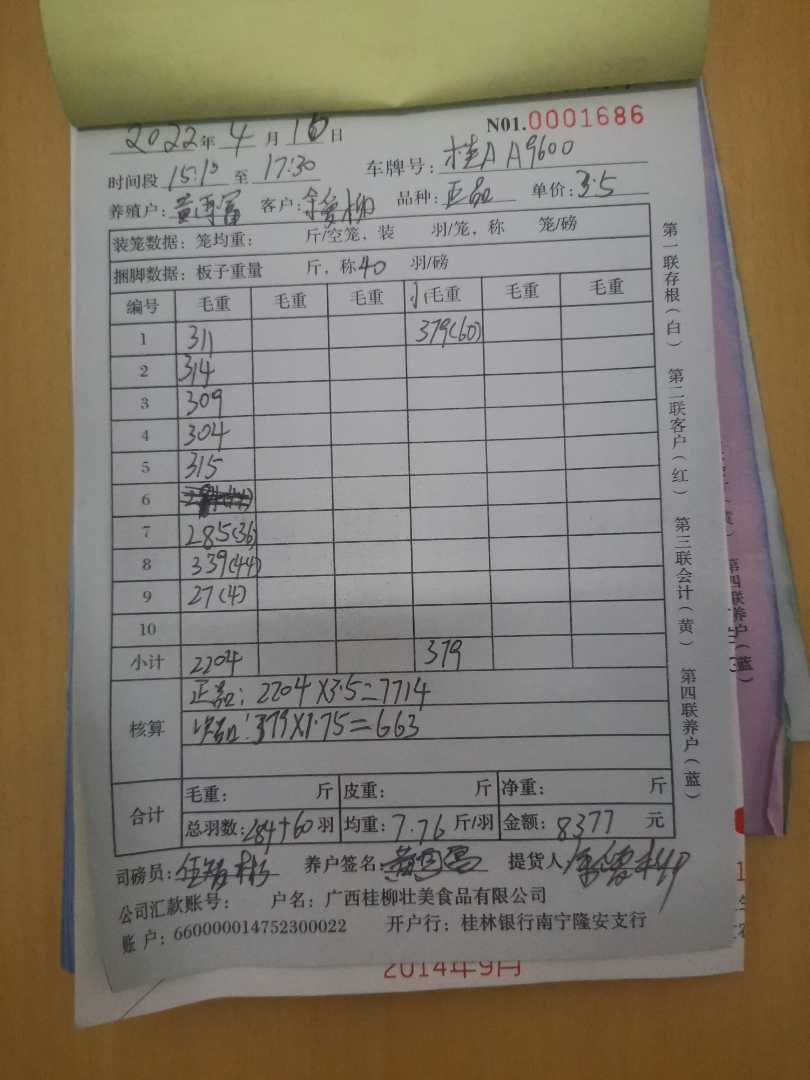 N01.0001686
2022年4月16日
时间段 15:10 至 17:30 车牌号：桂A A9600
养殖户：黄 富 客户：余爱柳 品种：正品 单价：3.5
装笼数据：笼均重： 斤/空笼，装 羽/笼，称 笼/磅
捆脚数据：板子重量 斤，称40 羽/磅
编号 毛重 毛重 毛重 小毛重 毛重 毛重
1 311 379(60)
2 314
3 309
4 304
5 315
6
7 285(36)
8 339(44)
9 27(4)
10
小计 2204 379
核算 正品：2204×3.5=7714
次品：379×1.75=663
合计 毛重： 斤 皮重： 斤 净重： 斤
总羽数：284+60羽 均重：7.76斤/羽 金额：8377 元
司磅员： 养户签名： 提货人
公司汇款账号： 户名：广西桂柳壮美食品有限公司
账户：660000014752300022 开户行：桂林银行南宁隆安支行
第一联存根（白） 第二联客户（红） 第三联会计（黄） 第四联养户（蓝）
第四联养户（蓝）
2014年9月